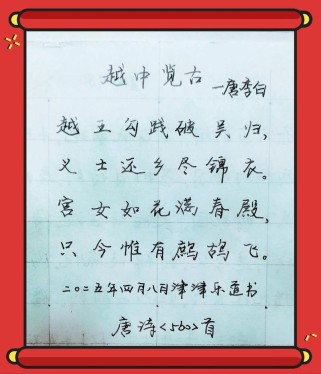 越中览古
—唐李白
越王勾践破吴归,
义士还乡尽锦衣。
宫女如花满春殿,
只今惟有鹧鸪飞。
二〇二五年四月八日津津乐道书
唐诗<560>首